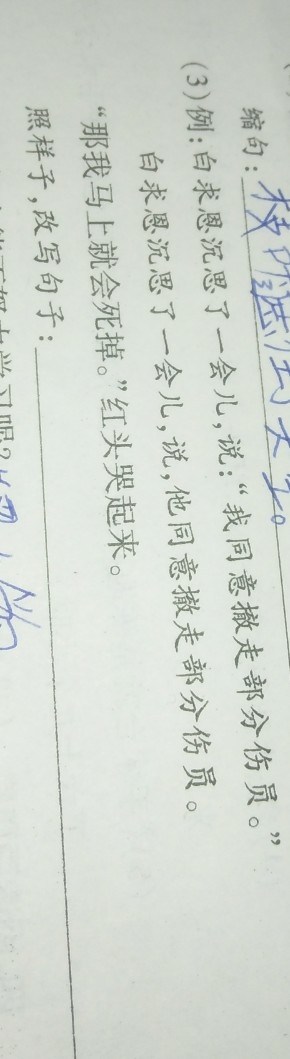 缩句：
(3)例：白求恩沉思了一会儿，说：“我同意撤走部分伤员。”
白求恩沉思了一会儿，说，他同意撤走部分伤员。
“那我马上就会死掉。”红头哭起来。
照样子，改写句子：